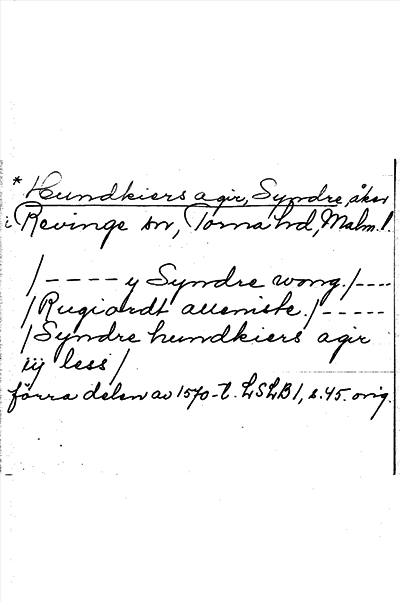 * Hundkiers agir, Syndre, åker
i Revinge sn, Torna hd, Malm. l.
/---- y Syndre wong. /----
/ Rugiardt alleniste. / -----
/ Syndre hundkiers agir
iij less /
förra delen av 1570-t. LSLB 1, s. 45. orig.